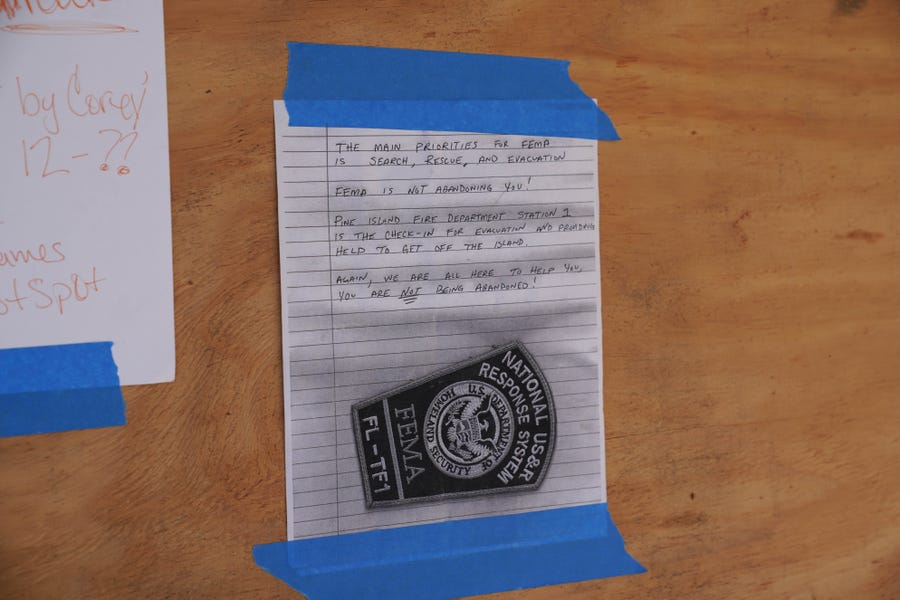 by Corey
12-??
ames
otSpot
THE MAIN PRIORITIES FOR FEMA
IS SEARCH, RESCUE, AND EVACUATION
FEMA IS NOT ABANDONING YOU!
PINE ISLAND FIRE DEPARTMENT STATION 1
IS THE CHECK-IN FOR EVACUATION AND PROVIDING
HELD TO GET OFF THE ISLAND.
AGAIN, WE ARE ALL HERE TO HELP YOU,
YOU ARE NOT BEING ABANDONED!
NATIONAL US&R
RESPONSE SYSTEM
U.S. DEPARTMENT OF
HOMELAND SECURITY
FEMA
FL-TF1